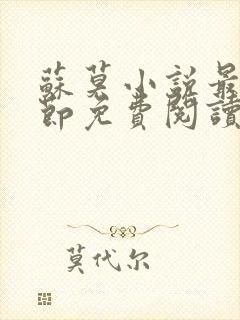 蘇莫小説最
節免費閱讀
莫代尔